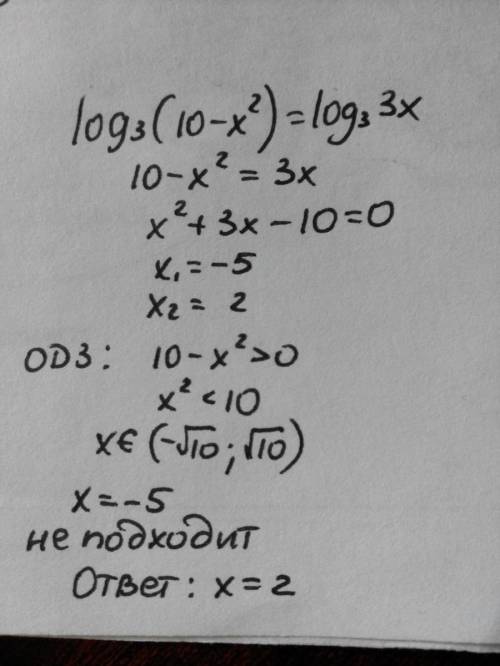 log₃(10-x²)=log₃ 3x
10-x² = 3x
x²+3x-10=0
x₁=-5
x₂= 2
ОДЗ: 10-x²>0
x²<10
x∈(-√10;√10)
x=-5
не подходит
Ответ: x=2